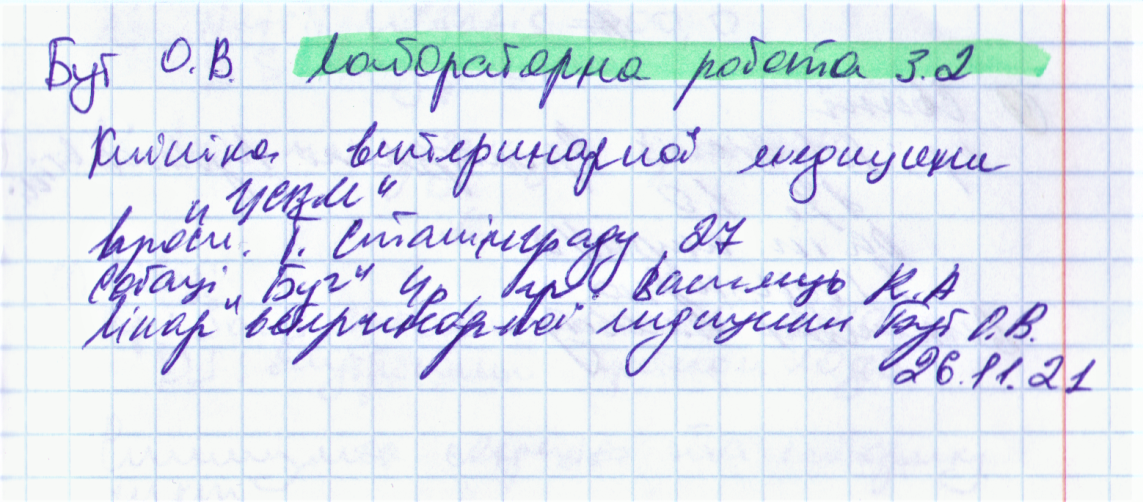 Бут О.В. Лабораторна робота 3.2
Клініка ветеринарної медицини
„ЦСВМ“
просп. Г. Сталінграду 27
Собаці „Буч“ 4р, гр.
К.А
Лікар ветеринарної медицини Бут О.В.
26.11.21